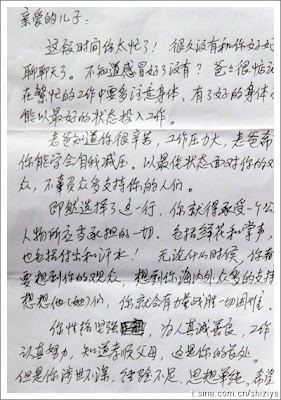 亲爱的儿子：
这段时间你太忙了！很久没有和你好好
聊聊天了。不知道感冒好了没有？爸爸很惦记
在繁忙的工作中要多注意身体，有了好的身体才
能以最好的状态投入工作。
老爸知道你很辛苦，工作压力大，老爸希
你能学会自我减压。以最佳状态面对你的观
众，不辜负众多支持你的人们。
即然选择了这一行，你就得承受一个公
人物所应当承担的一切。包括鲜花和掌声，
也包括付出和汗水！无论什么时候，你都
要想到你的观众，想到你海内外众多的支持
想想他(她)们，你就会有力量战胜一切困难。
你性格坚强，为人真诚善良，工作
认真努力，知道孝顺父母，这是你的长处。
但是你涉世不深，经验不足，思想单纯。希望
t.sina.com.cn/shiziya